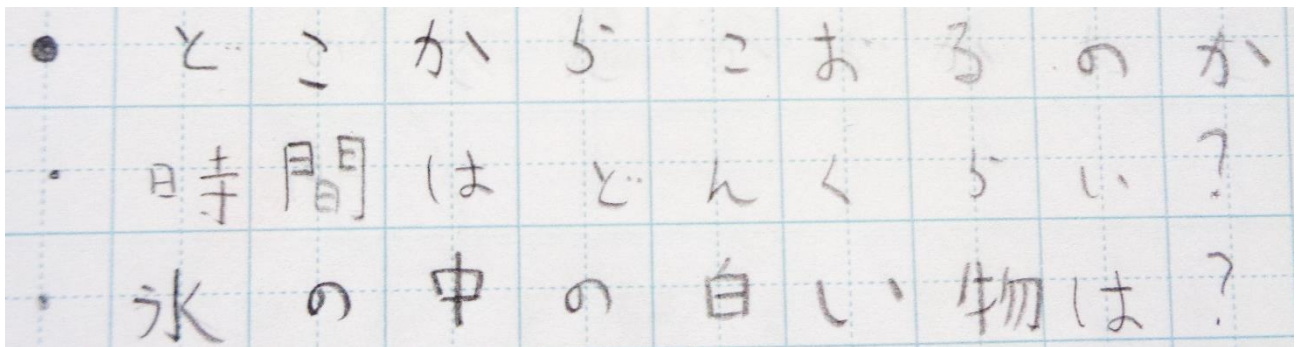 ・どこからこおるのか
・時間はどんくらい?
・氷の中の白い物は?